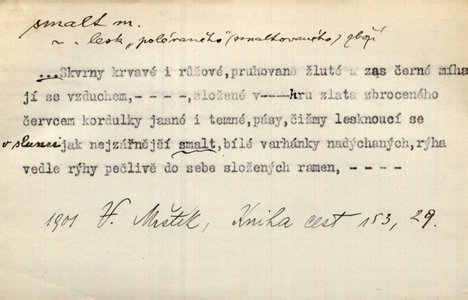 smalt m.
~ „ lesk „polévaného” (smaltovaného) zboží
...Skvrny krvavé i růžové,pruhované žluté a zas černé míha
jí se vzduchem,- - - -,složené v----hru zlata zbroceného
červcem kordulky jasné i temné,pásy,čižmy lesknoucí se
v slunci jak nejzářnější smalt,bílé varhánky nadýchaných,rýha
vedle rýhy pečlivě do sebe složených ramen, - - - -
1901 V. Mrštík, Kniha cest 153, 29.